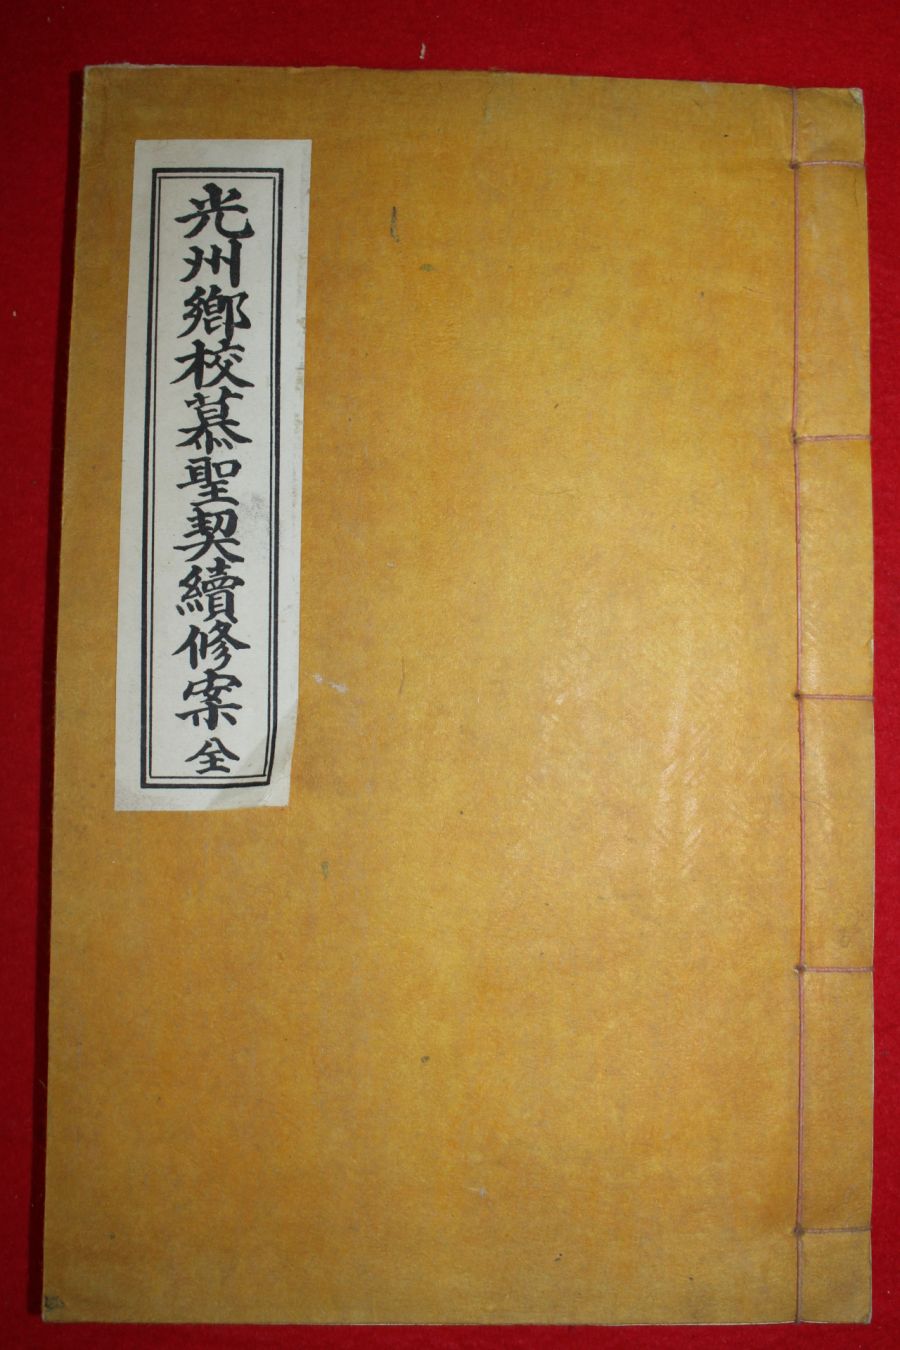 光州鄉校慕聖契續修案 全